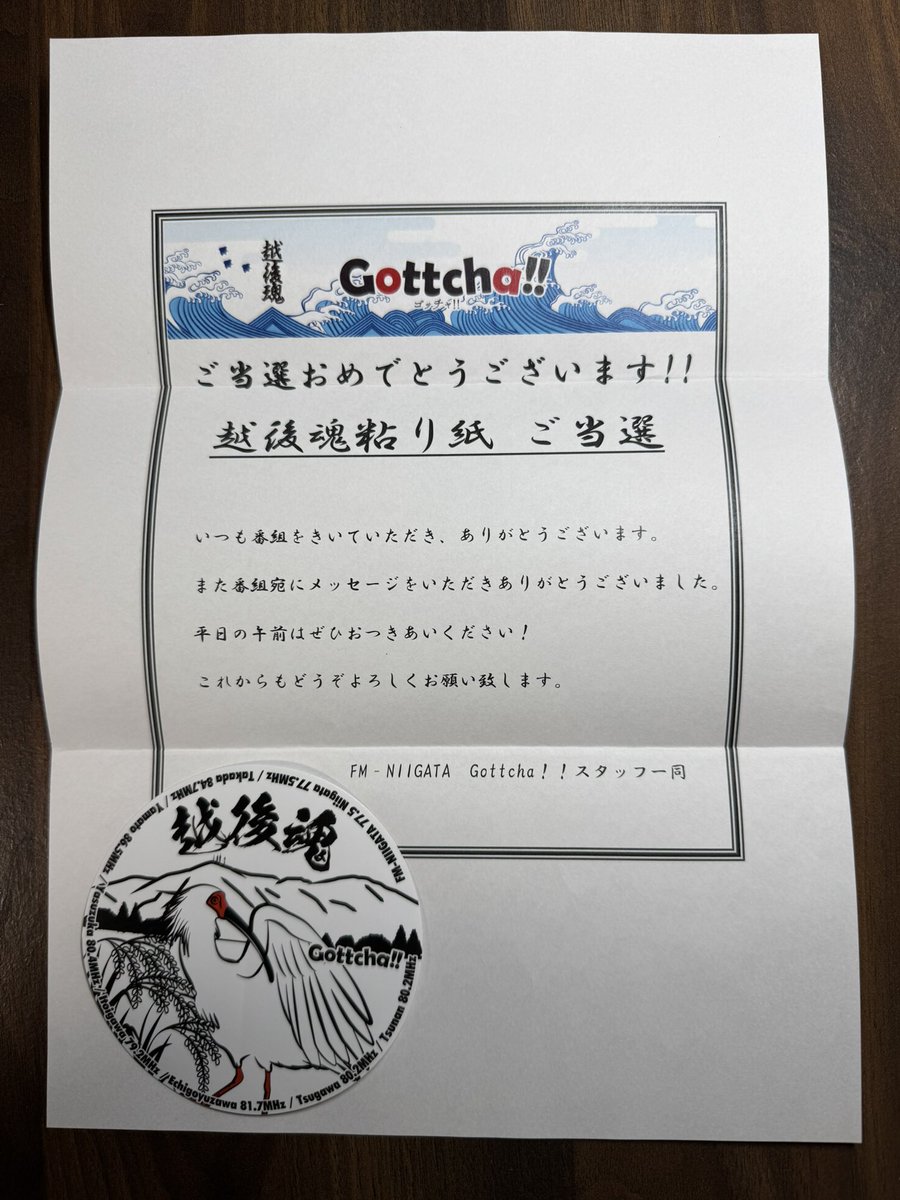 越後魂
Gottcha!!
ゴッチャ!!
ご当選おめでとうございます!!
越後魂粘り紙 ご当選
いつも番組をきいていただき、ありがとうございます。
また番組宛にメッセージをいただきありがとうございました。
平日の午前はぜひおつきあいください！
これからもどうぞよろしくお願い致します。
FM‐NIIGATA Gottcha！！スタッフ一同
越後魂
Gottcha!!
FM-NIIGATA 77.5 Niigata 77.5MHz / Takada 84.7MHz / Yamato 86.5MHz / Yasuzuka 80.4MHz / Itoigawa 79.2MHz / Echigoyuzawa 81.7MHz / Tsugawa 80.2MHz / Tsunan 80.2MHz